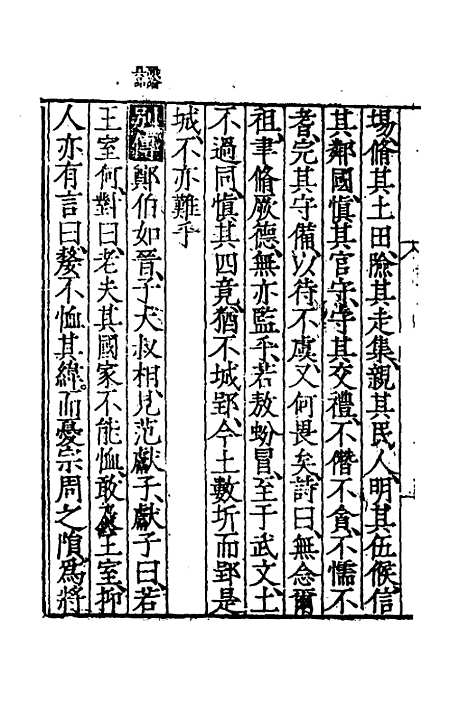 埸脩其土田險其走集親其民人明其伍候信
其鄰國慎其官守守其交禮不僭不貪不懦不
耆完其守備以待不虞又何畏矣詩曰無念爾
祖聿脩厥德無亦監乎若敖蚡冒至于武文土
不過同慎其四竟猶不城郢今土數圻而郢是
城不亦難乎
別傳鄭伯如晉子大叔相見范獻子獻子曰若
王室何對曰老夫其國家不能恤敢及王室抑
人亦有言曰嫠不恤其緯而憂宗周之隕為將